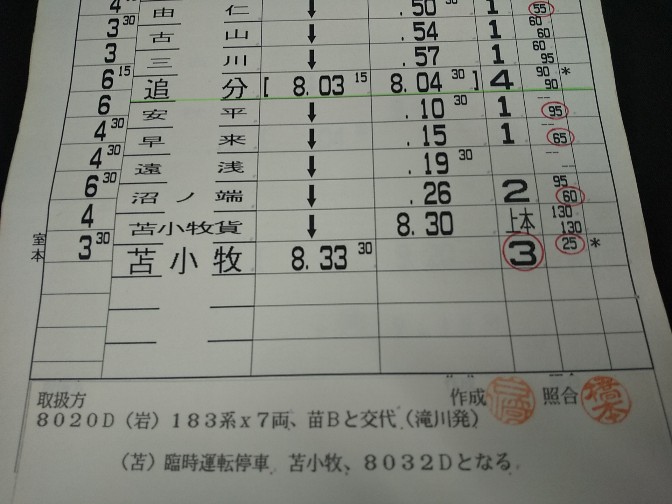 4 由仁 ↓ .50 30 1 55
3 30 古山 ↓ .54 1 60 60
3 三川 ↓ .57 1 60 95
6 15 追分 [ 8.03 15 8.04 30 ] 4 90 90 *
6 安平 ↓ .10 30 1 95
4 30 早来 ↓ .15 1 65
4 30 遠浅 ↓ .19 30
6 30 沼ノ端 ↓ .26 2 95 60
4 苫小牧貨 ↓ 8.30 上本 130 130
室本 3 30 苫小牧 8.33 30 3 25 *
取扱方 作成 照合 橋本
8020D(岩)183系x7両、苗Bと交代(滝川発)
(苫)臨時運転停車 苫小牧、8032Dとなる